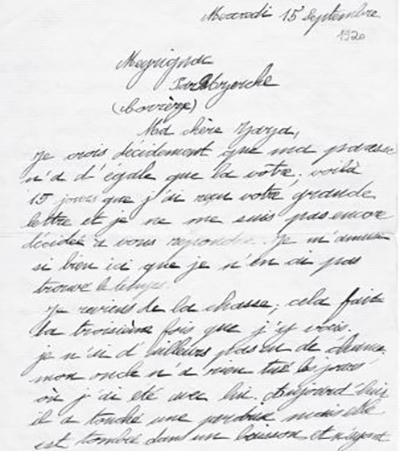 Mercredi 15 Septembre
1920
Meyrignac
par Uzerche
(Corrèze)
Ma chère Zaza,
Je crois décidément que ma paresse
n'a d'égale que la vôtre; voilà
15 jours que j'ai reçu votre grande
lettre et je ne me suis pas encore
décidée à vous répondre. Je m'amuse
si bien ici que je n'en ai pas
trouvé le temps.
Je reviens de la chasse; cela fait
la troisième fois que j'y vais.
je n'ai d'ailleurs pas eu de chance
mon oncle n'a rien tué les jours
où j'ai été avec lui. Aujourd'hui
il a touché une perdrix mais elle
est tombée dans un buisson et n'ayant